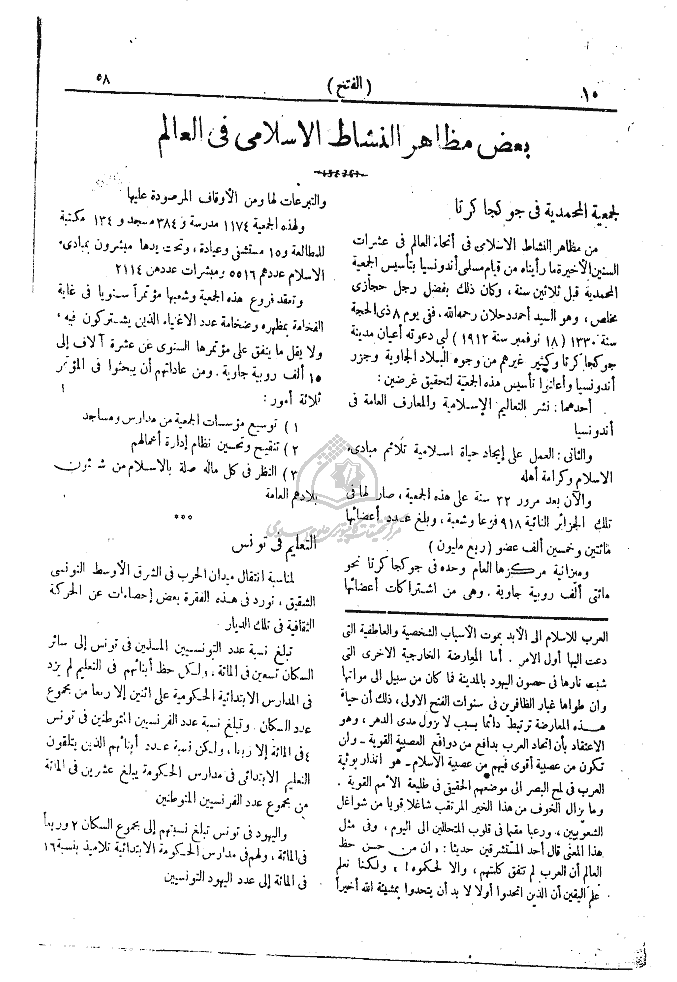 ١٠
( الفتح )
٥٨
بعض مظاهر النشاط الاسلامى فى العالم
لجمعية المحمدية فى جوكجا كرتا
من مظاهر النشاط الاسلامى فى أنحاء العالم فى عشرات
السنين الأخيرة ما رأيناه من قيام مسلمى أندونسيا بتأسيس الجمعية
المحمدية قبل ثلاثين سنة ، وكان ذلك بفضل رجل حجازى
مخلص ، وهو السيد أحمد دحلان رحمه الله . ففى يوم ٨ ذى الحجة
سنة ١٣٣٠ ( ١٨ نوفمبر سنة ١٩١٢ ) لبى دعوته أعيان مدينة
جوكجا كرتا وكثير غيرهم من وجوه البلاد الجاوية وجزر
أندونسيا وأعلنوا تأسيس هذه الجمعية لتحقيق غرضين :
أحدهما : نشر التعاليم الإسلامية والمعارف العامة فى
أندونسيا
والثانى : العمل على إيجاد حياة اسلامية تلائم مبادىء
الاسلام وكرامة أهله
والآن بعد مرور ٢٢ سنة على هذه الجمعية ، صار لها فى
تلك الجزائر النائية ٩١٨ فرعا وشعبة ، وبلغ عدد أعضائها
مائتين وخمسين ألف عضو ( ربع مليون )
وميزانية مركزها العام وحده فى جوكجا كرتا نحو
مائتى ألف روبية جاوية . وهى من اشتراكات أعضائها
والتبرعات لها ومن الأوقاف المرصودة عليها
ولهذه الجمعية ١١٧٤ مدرسة و ٣٨٤ مسجد و ١٣٤ مكتبة
للمطالعة و ١٥ مستشفى وعيادة ، وتحت يدها مبشرون بمبادىء
الاسلام عددهم ٥٥١٦ ومبشرات عددهن ٢١١٤
وتعقد فروع هذه الجمعية وشعبها مؤتمراً سنويا فى غاية
الفخامة بمظهره وضخامة عدد الاغنياء الذين يشتركون فيه ،
ولا يقل ما ينفق على مؤتمرها السنوى عن عشرة آلاف إلى
١٥ ألف روبية جاوية . ومن عاداتهم أن يبحثوا فى المؤتمر
ثلاثة أمور :
١ ) توسيع مؤسسات الجمعية من مدارس ومساجد
٢ ) تنقيح وتحسين نظام إدارة أعمالهم
٣ ) النظر فى كل ماله صلة بالاسلام من شئون
بلادهم العامة
***
التعليم فى تونس
لمناسبة انتقال ميدان الحرب فى الشرق الأوسط التونسى
الشقيق ، نورد فى هذه الفقرة بعض إحصاءات عن الحركة
الثقافية فى تلك الديار
تبلغ نسبة عدد التونسيين المسلمين فى تونس إلى سائر
السكان تسعين فى المائة ، ولكن حظ أبنائهم فى التعليم لم يزد
فى المدارس الابتدائية الحكومية على اثنين إلا ربعا من مجموع
عدد السكان . وتبلغ نسبة عدد الفرنسيين المتوطنين فى تونس
٤ فى المائة إلا ربعا ، ولكن نسبة عدد أبنائهم الذين يتلقون
التعليم الابتدائى فى مدارس الحكومة يبلغ عشرين فى المائة
من مجموع عدد الفرنسيين المتوطنين
واليهود فى تونس تبلغ نسبتهم إلى مجموع السكان ٢ وربعاً
فى المائة ، ولهم فى مدارس الحكومة الابتدائية تلاميذ بنسبة ١٦
فى المائة إلى عدد اليهود التونسيين
العرب للاسلام الى الأبد بموت الأسباب الشخصية والعاطفية التى
دعت اليها أول الامر . أما المعارضة الخارجية الاخرى التى
شبت نارها فى حصون اليهود بالمدينة فما كان من سبيل الى مواتها
وان طواها غبار الظافرين فى سنوات الفتح الاولى ، ذلك أن حياة
هذه المعارضة ترتبط دائما بسبب لا يزول مدى الدهر ، وهو
الاعتقاد بأن اتحاد العرب بدافع من دوافع العصبية القوية - ولن
تكون من عصبية أقوى فيهم من عصبية الاسلام - هو انذار بوثبة
العرب فى لمح البصر الى موضعهم الحقيقى فى طليعة الأمم القوية .
وما يزال الخوف من هذا الخبر المرتقب شاغلا قويا من شواغل
الشعوبيين ، ورعبا مقيما فى قلوب المتحللين الى اليوم ، وفى مثل
هذا المعنى قال أحد المستشرقين حديثا : « ان من حسن حظ
العالم أن العرب لم تتفق كلمتهم ، والا لحكموه ! » ولكننا نعلم
علم اليقين أن الذين اتحدوا أولا لا بد أن يتحدوا بمشيئة الله أخيراً